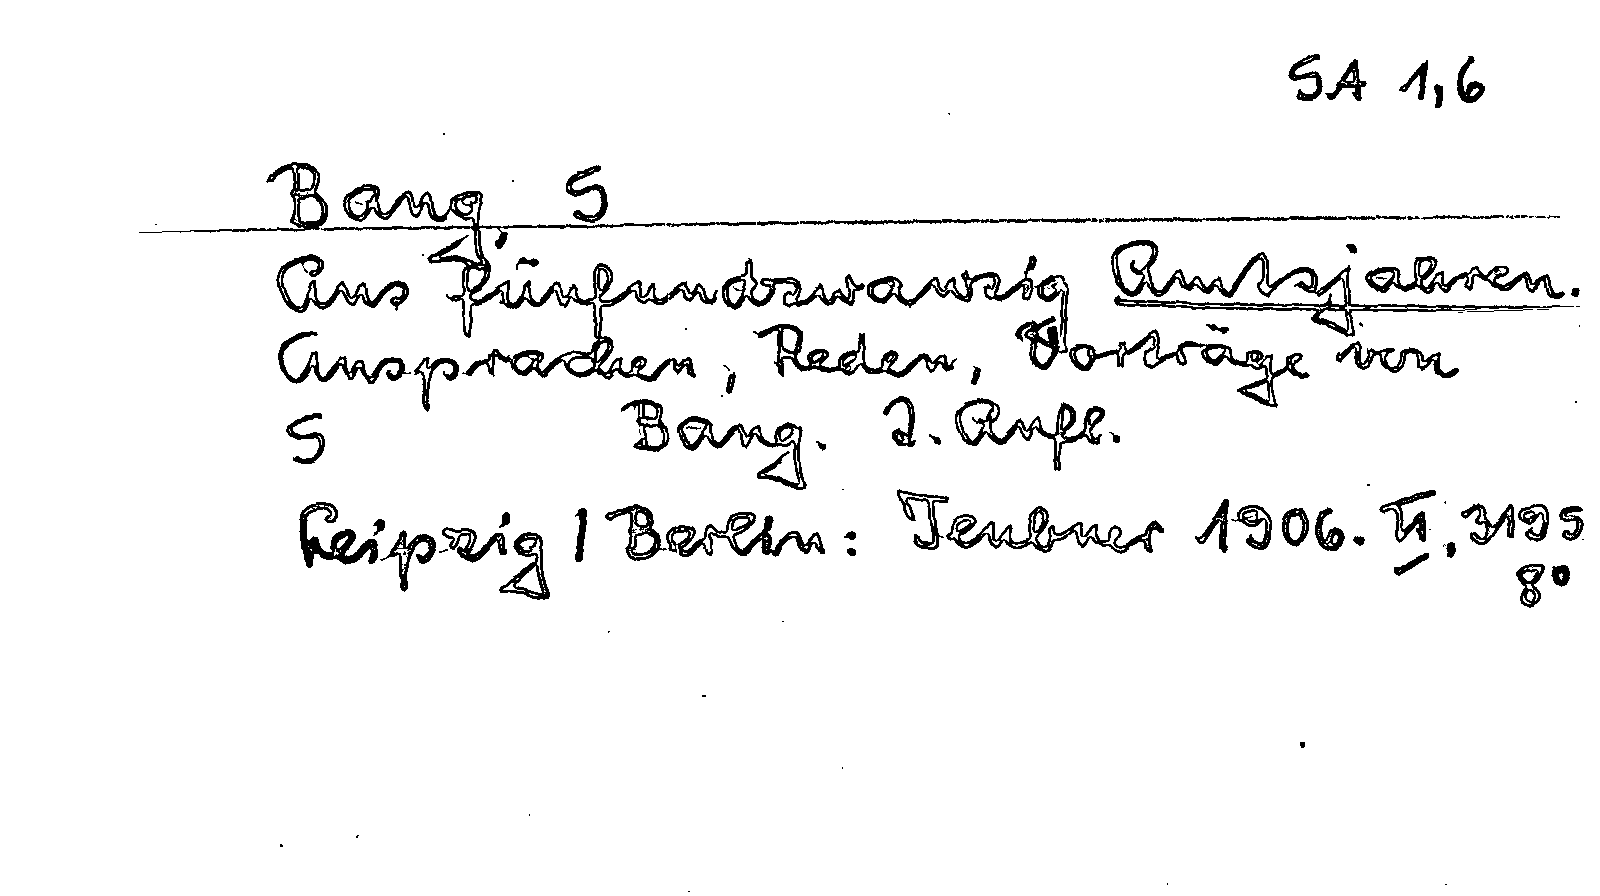 SA 1,6
Bang, S
Aus fünfundzwanzig Amtsjahren.
Ansprachen, Reden, Vorträge von
S Bang. 2. Aufl.
Leipzig / Berlin: Teubner 1906. VI, 319 S
8°